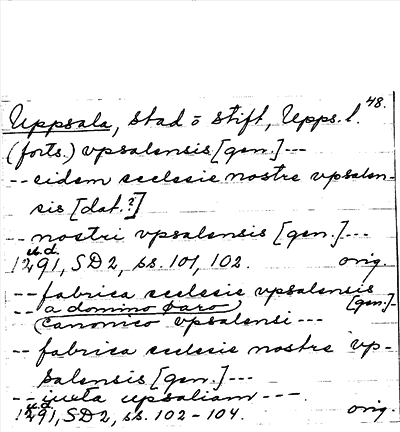 48.
Uppsala, stad o stift, Upps. l.
(forts.) vpsalensis [gen.] ---
-- eidem ecclesie nostre vpsalen-
sis [dat.?]
-- nostri vpsalensis [gen.] ---
u.d.
1291, SD2, ss. 101, 102. orig.
-- fabrica ecclesie vpsalensis [gen.] -
-- a domino
canonico vpsalensi ---
-- fabrica ecclesie nostre vp-
salensis [gen.] ---
-- iuxta upsaliam ---
u.d.
1291, SD2, ss. 102-104. orig.